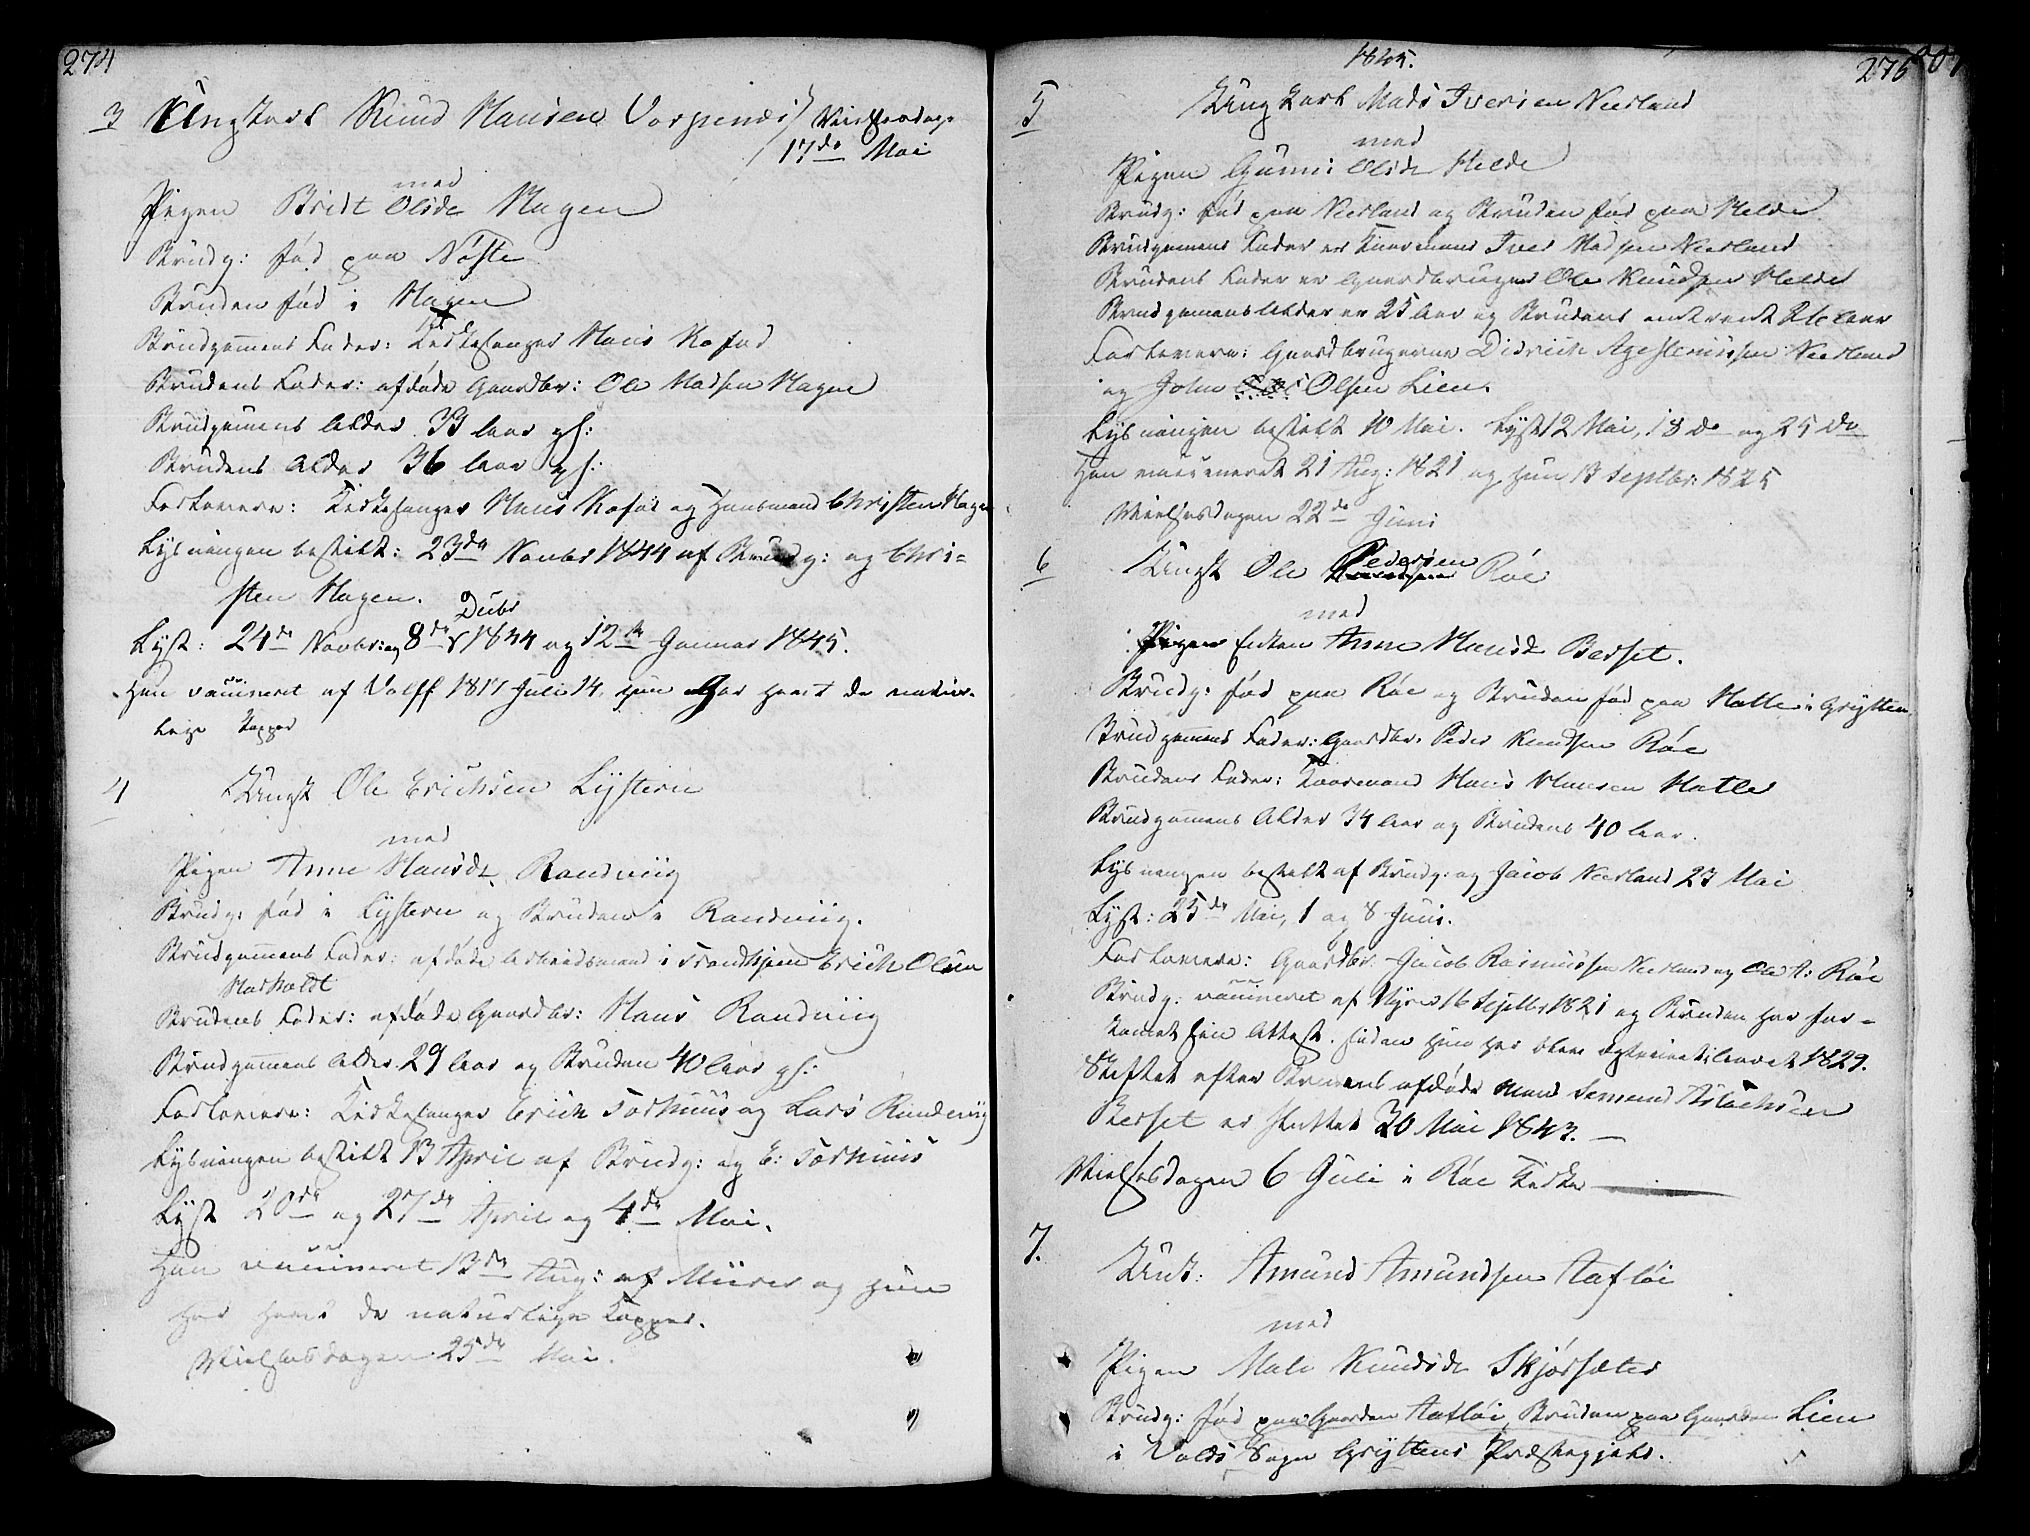 274
3 Ungkarl Knud Hansen Vorpenæs / Vielsesdag
17de Mai
med
Pigen Brit Olsdr Hagen
Brudg: fød paa Nøste
Bruden fød i Hagen
Brudgomens Fader: Kirkesanger Hans Kofod
Brudens Fader: afdøde Gaardbr: Ole Madsen Hagen
Brudgomens Alder 33 Aar gl:
Brudens Alder 36 Aar gl:
Forlovere: Kirkesanger Hans Kofod og Huusmand Christen Hagen
Lysningen bestilt: 23de Novbr 1844 af Brudg: og Chri-
sten Hagen.
Decbr
Lyst: 24de Novbr: og 8de 1844 og 12te Januar 1845.
Han vaccineret af Wolff 1817 Juli 14, hun har havt de natur-
lige Kopper
4 Ungk Ole Erichsen Lystern
med
Pigen Anne Hansdr Randviig
Brudg: fød i Lystern og Bruden i Randviig.
Brudgomens Fader: afdøde Arbeidsmand i Trondhjem Erich Olsen
Brudens Fader: afdøde Gaardbr: Hans Randviig
Brudgomens Alder 29 Aar og Bruden 40 Aar gl:
Forlovere: Kirkesanger Erich Torhuus og Lars Randviig
Lysningen bestilt 13 April af Brudg: og E: Torhuus
Lyst 20de og 27de April og 4de Mai.
Han vaccineret 13de Aug: af Müirer og hun
har havt de naturlige Kopper.
Vielsesdagen 25de Mai.
1845.
275
5 Ungkarl Mads Iversen Neerland
med
Pigen Gunni Olsdr Helde
Brudg: fød paa Neerland og Bruden fød paa Helde
Brudgomens Fader er Kaarmand Iver Madsen Neerland
Brudens Fader er Gaardbruger Ole Knudsen Helde
Brudgomens Alder er 25 Aar og Brudens omtrent 26 Aar
Forlovere: Gaardbrugerne Didrich Agestenussen Neerland
og John Olsen Lien.
Lysningen bestilt 10 Mai. Lyst 12 Mai, 18 do og 25 do
Han vaccineret 21 Aug: 1821 og hun 13 Septbr: 1825
Vielsesdagen 22de Juni
6 Ungk Ole Pedersen Røe
med
Pigen Enken Anne Hansdr Berset.
Brudg: fød paa Røe og Bruden fød paa Hatle i Grytten.
Brudgomens Fader: Gaardbr. Peder Knudsen Røe
Brudens Fader: Kaarmand Hans Hansen Hatle
Brudgomens Alder 34 Aar og Brudens 40 Aar.
Lysningen bestilt af Brudg: og Jacob Neerland 23 Mai
Lyst: 25de Mai, 1 og 8 Juni.
Forlovere: Gaardbr. Jacob Rasmussen Neerland og Ole A: Røe
Brudg: vaccineret af Myrer 16 Septbr 1821 og Bruden har for-
komet sin Attest. siden hun her blev egteviet i Aaret 1829.
Skiftet efter Brudens afdøde Mand Semund Aslachsen
Berset er sluttet 30 Mai 1843. —
Vielsesdagen 6 Juli i Røe Kirke
7. Unk: Amund Amundsen Aafløi
med
Pigen Mali Knudsdr Skjørsæter
Brudg: fød paa Gaarden Aafløi, Bruden paa Gaarden Lien
i Volds Sogn Gryttens Præstegjeld.